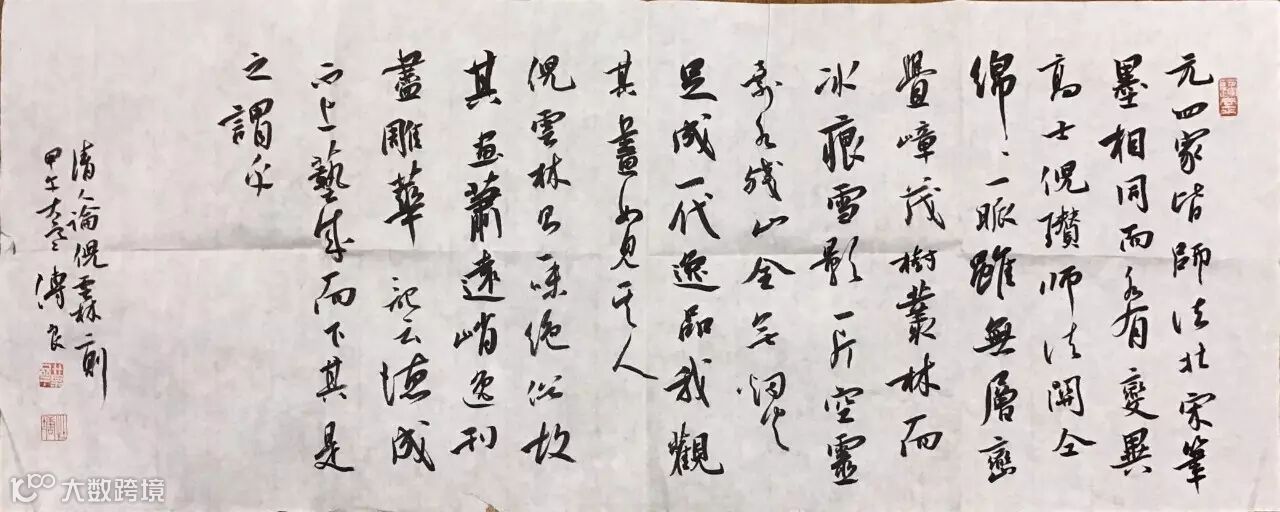 元四家皆師法北宋筆
墨相同而各有變異
高士倪瓚師法關仝
綿綿一脈雖無層巒
疊嶂茂樹叢林而
冰痕雪影一片空靈
剩水殘山全無烟火
足成一代逸品我觀
其畫如見其人
倪雲林品味絕俗故
其畫蕭遠峭逸刊
盡雕華記云德成
而上藝成而下其是
之謂乎
清人論倪雲林二則
甲午大寒傅良
大数跨境